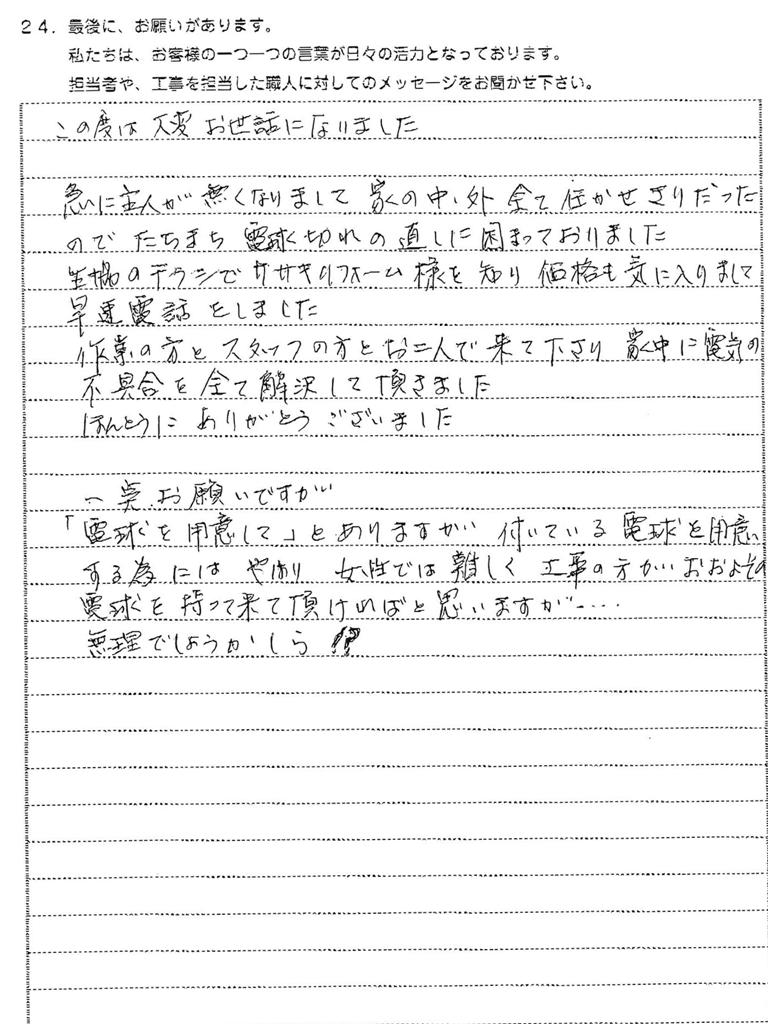 24. 最後に、お願いがあります。
私たちは、お客様の一つ一つの言葉が日々の活力となっております。
担当者や、工事を担当した職人に対してのメッセージをお聞かせ下さい。
この度は 大変 お世話になりました
急に主人が 無くなりまして 家の中、外 全て 任かせきりだった
ので たちまち 電球切れの 直しに 困まっておりました
生協のチラシで ササキリフォーム 様を 知り 価格も 気に入りまして
早速電話 をしました
作業の方と スタッフの方と お二人で 来て 下さり 家中に 電気の
不具合を 全て 解決して 頂きました
ほんとうに ありがとう ございました
一点 お願いですが
「電球を 用意して」とありますが 付いている 電球を 用意
する為 には やはり 女性では 難しく 工事の 方が おおよその
電球を 持って来て 頂ければと 思いますが……
無理でしょうかしら !?